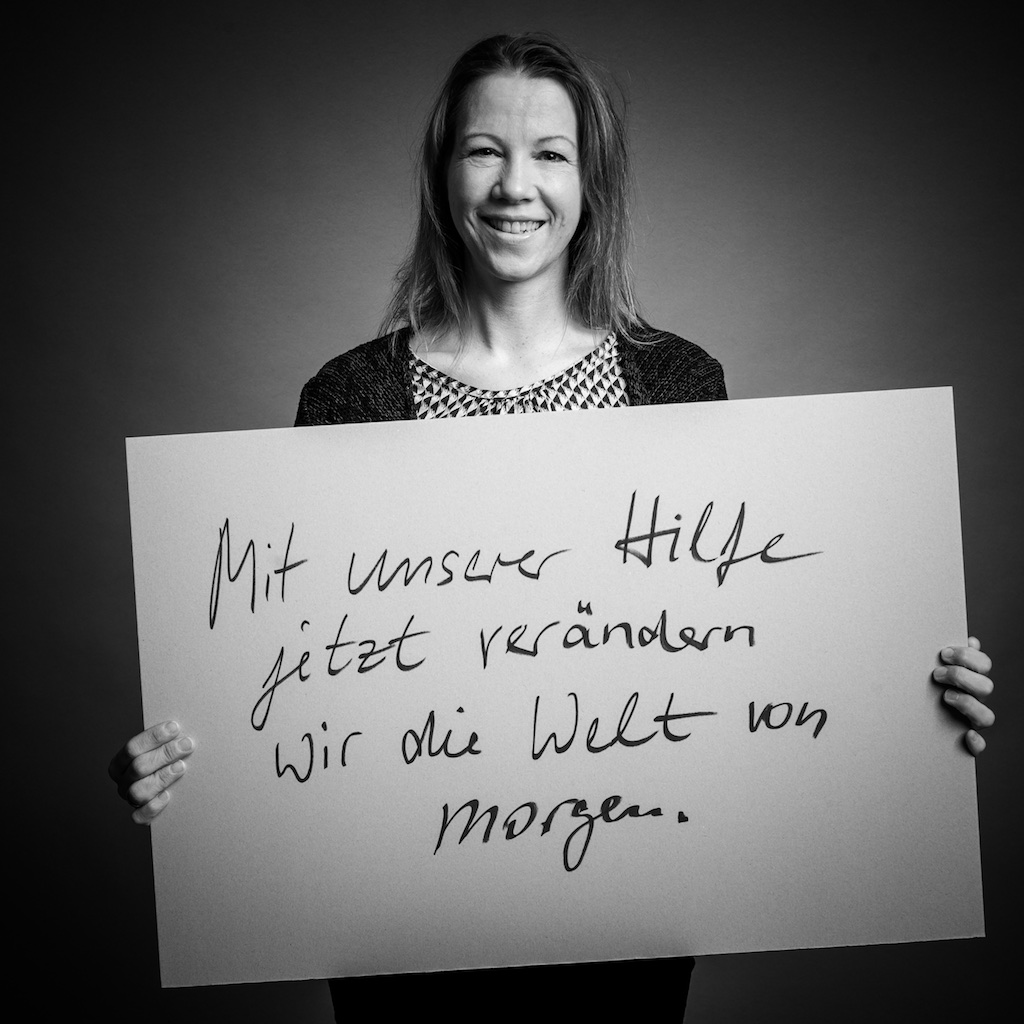 Mit unserer Hilfe
jetzt verändern
wir die Welt von
morgen.